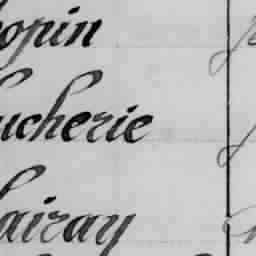 opin
ucherie
airay